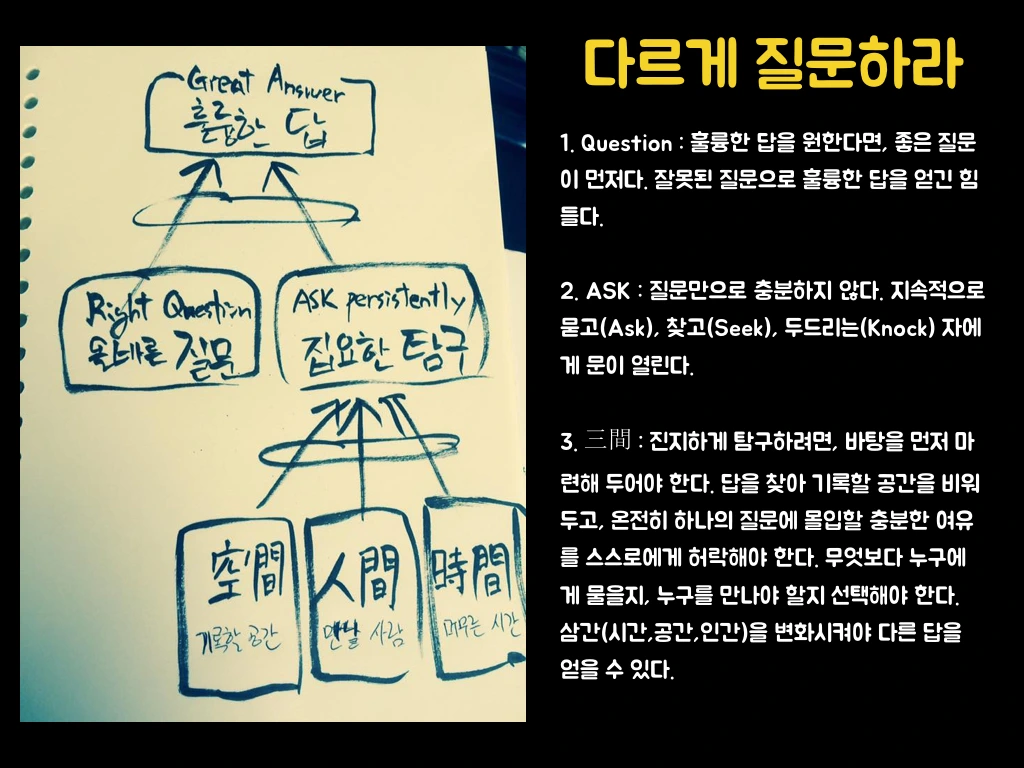 Great Answer
훌륭한 답
Right Question
올바른 질문
ASK persistently
집요한 탐구
空間
기록할 공간
人間
만날 사람
時間
머무는 시간
다르게 질문하라
1. Question : 훌륭한 답을 원한다면, 좋은 질문
이 먼저다. 잘못된 질문으로 훌륭한 답을 얻긴 힘
들다.
2. ASK : 질문만으로 충분하지 않다. 지속적으로
묻고(Ask), 찾고(Seek), 두드리는(Knock) 자에
게 문이 열린다.
3. 三間 : 진지하게 탐구하려면, 바탕을 먼저 마
련해 두어야 한다. 답을 찾아 기록할 공간을 비워
두고, 온전히 하나의 질문에 몰입할 충분한 여유
를 스스로에게 허락해야 한다. 무엇보다 누구에
게 물을지, 누구를 만나야 할지 선택해야 한다.
삼간(시간,공간,인간)을 변화시켜야 다른 답을
얻을 수 있다.